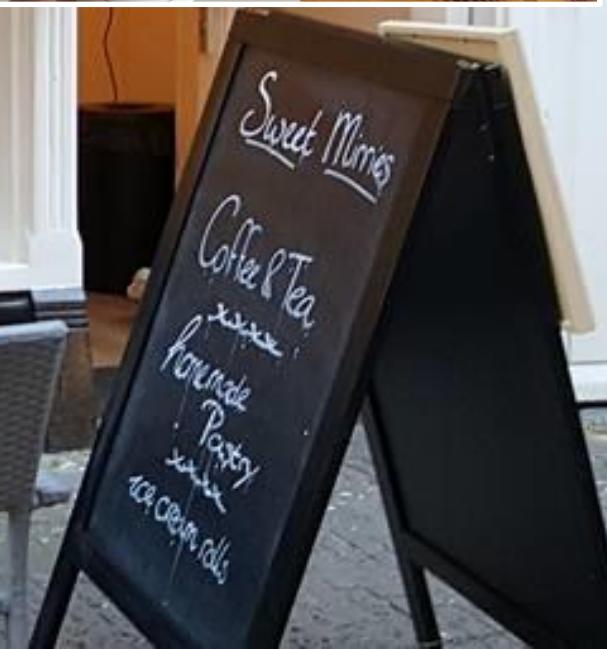 Sweet Mimies
Coffee & Tea
xxxx
homemade
Pastry
xxxx
ice cream rolls